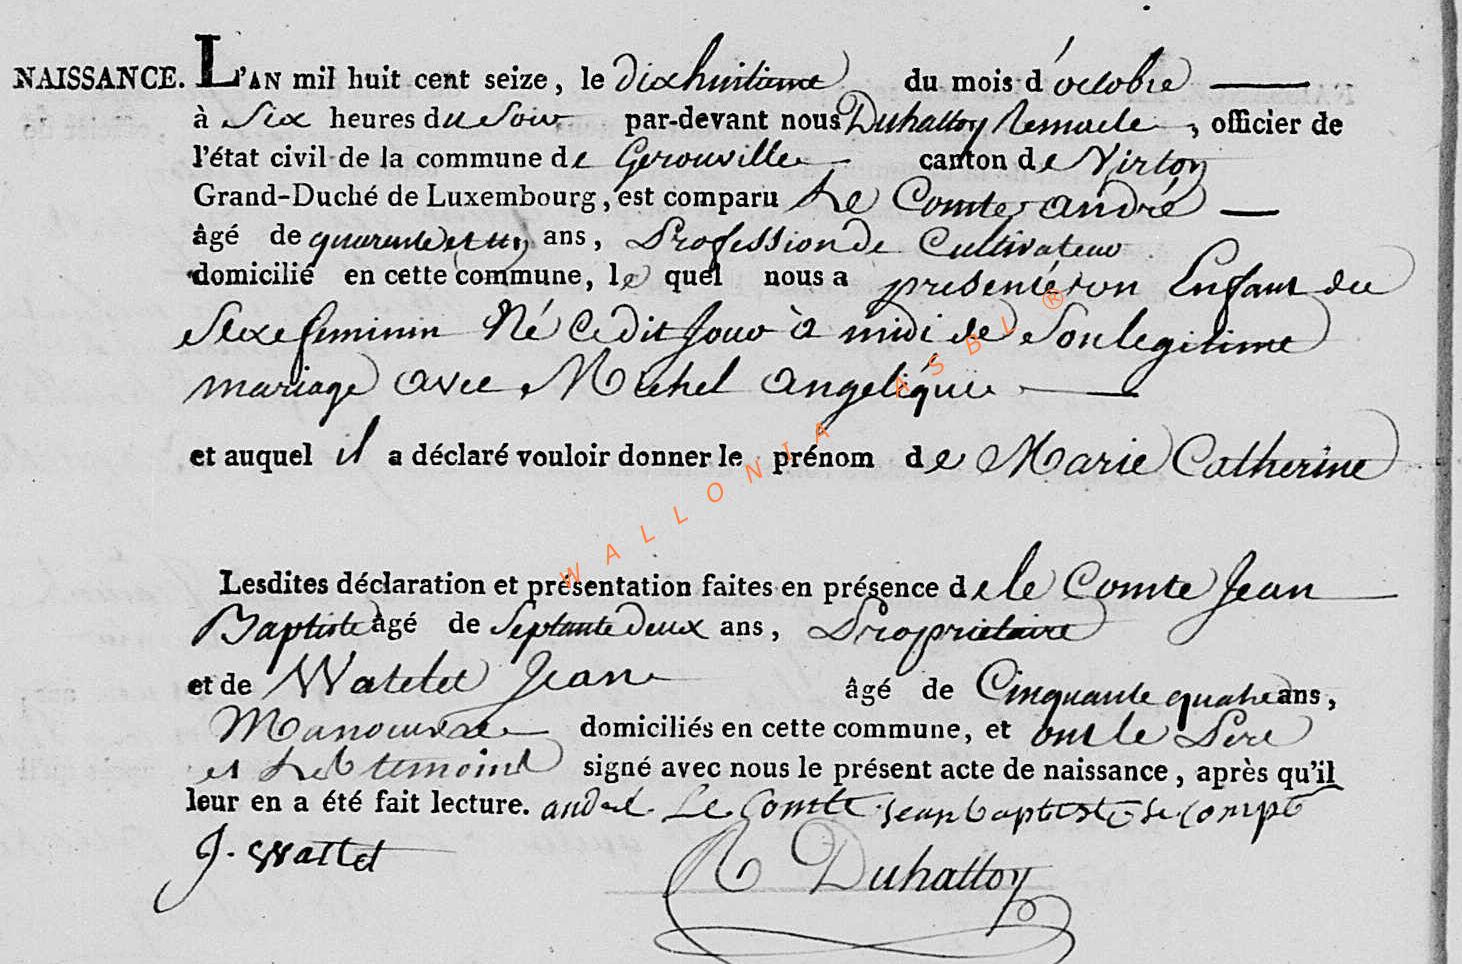 NAISSANCE. L'AN mil huit cent seize, le dixhuitieme du mois d'octobre
à Six heures du Soir par-devant nous Duhattoy Remacle, officier de
l'état civil de la commune de Gerouville canton de Virton
Grand-Duché de Luxembourg, est comparu Le Comte andré
âgé de quarente et un ans, Profession de Cultivateur
domicilié en cette commune, le quel nous a presenté un Enfant du
Sexe feminin Né Cedit Jour à midi de Son legitime
mariage avec Michel angelique
et auquel il a déclaré vouloir donner le prénom de Marie Catherine
WALLONIA ASBL ®
Lesdites déclaration et présentation faites en présence de le Comte Jean
Baptiste âgé de Septante deux ans, Proprietaire
et de Watelet Jean âgé de Cinquante quatre ans,
Manouvre domiciliés en cette commune, et ont le Pere
et Les temoins signé avec nous le présent acte de naissance, après qu'il
leur en a été fait lecture. andré Le Comte jean baptiste le compt
J. Wattet
R Duhattoy